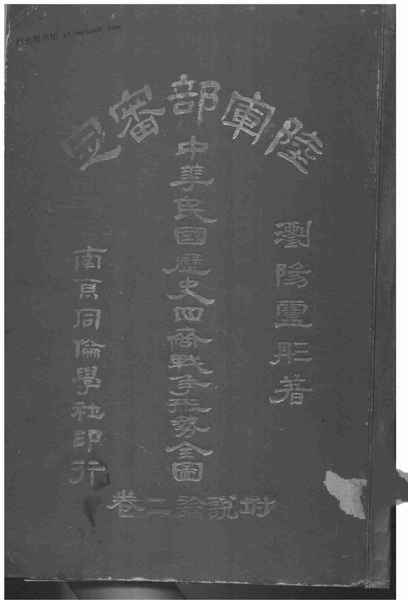 陸軍部審定
瀏陽盧彤著
中華民國歷史四裔戰爭形勢全圖
坿說論二卷
南京同倫學社印行